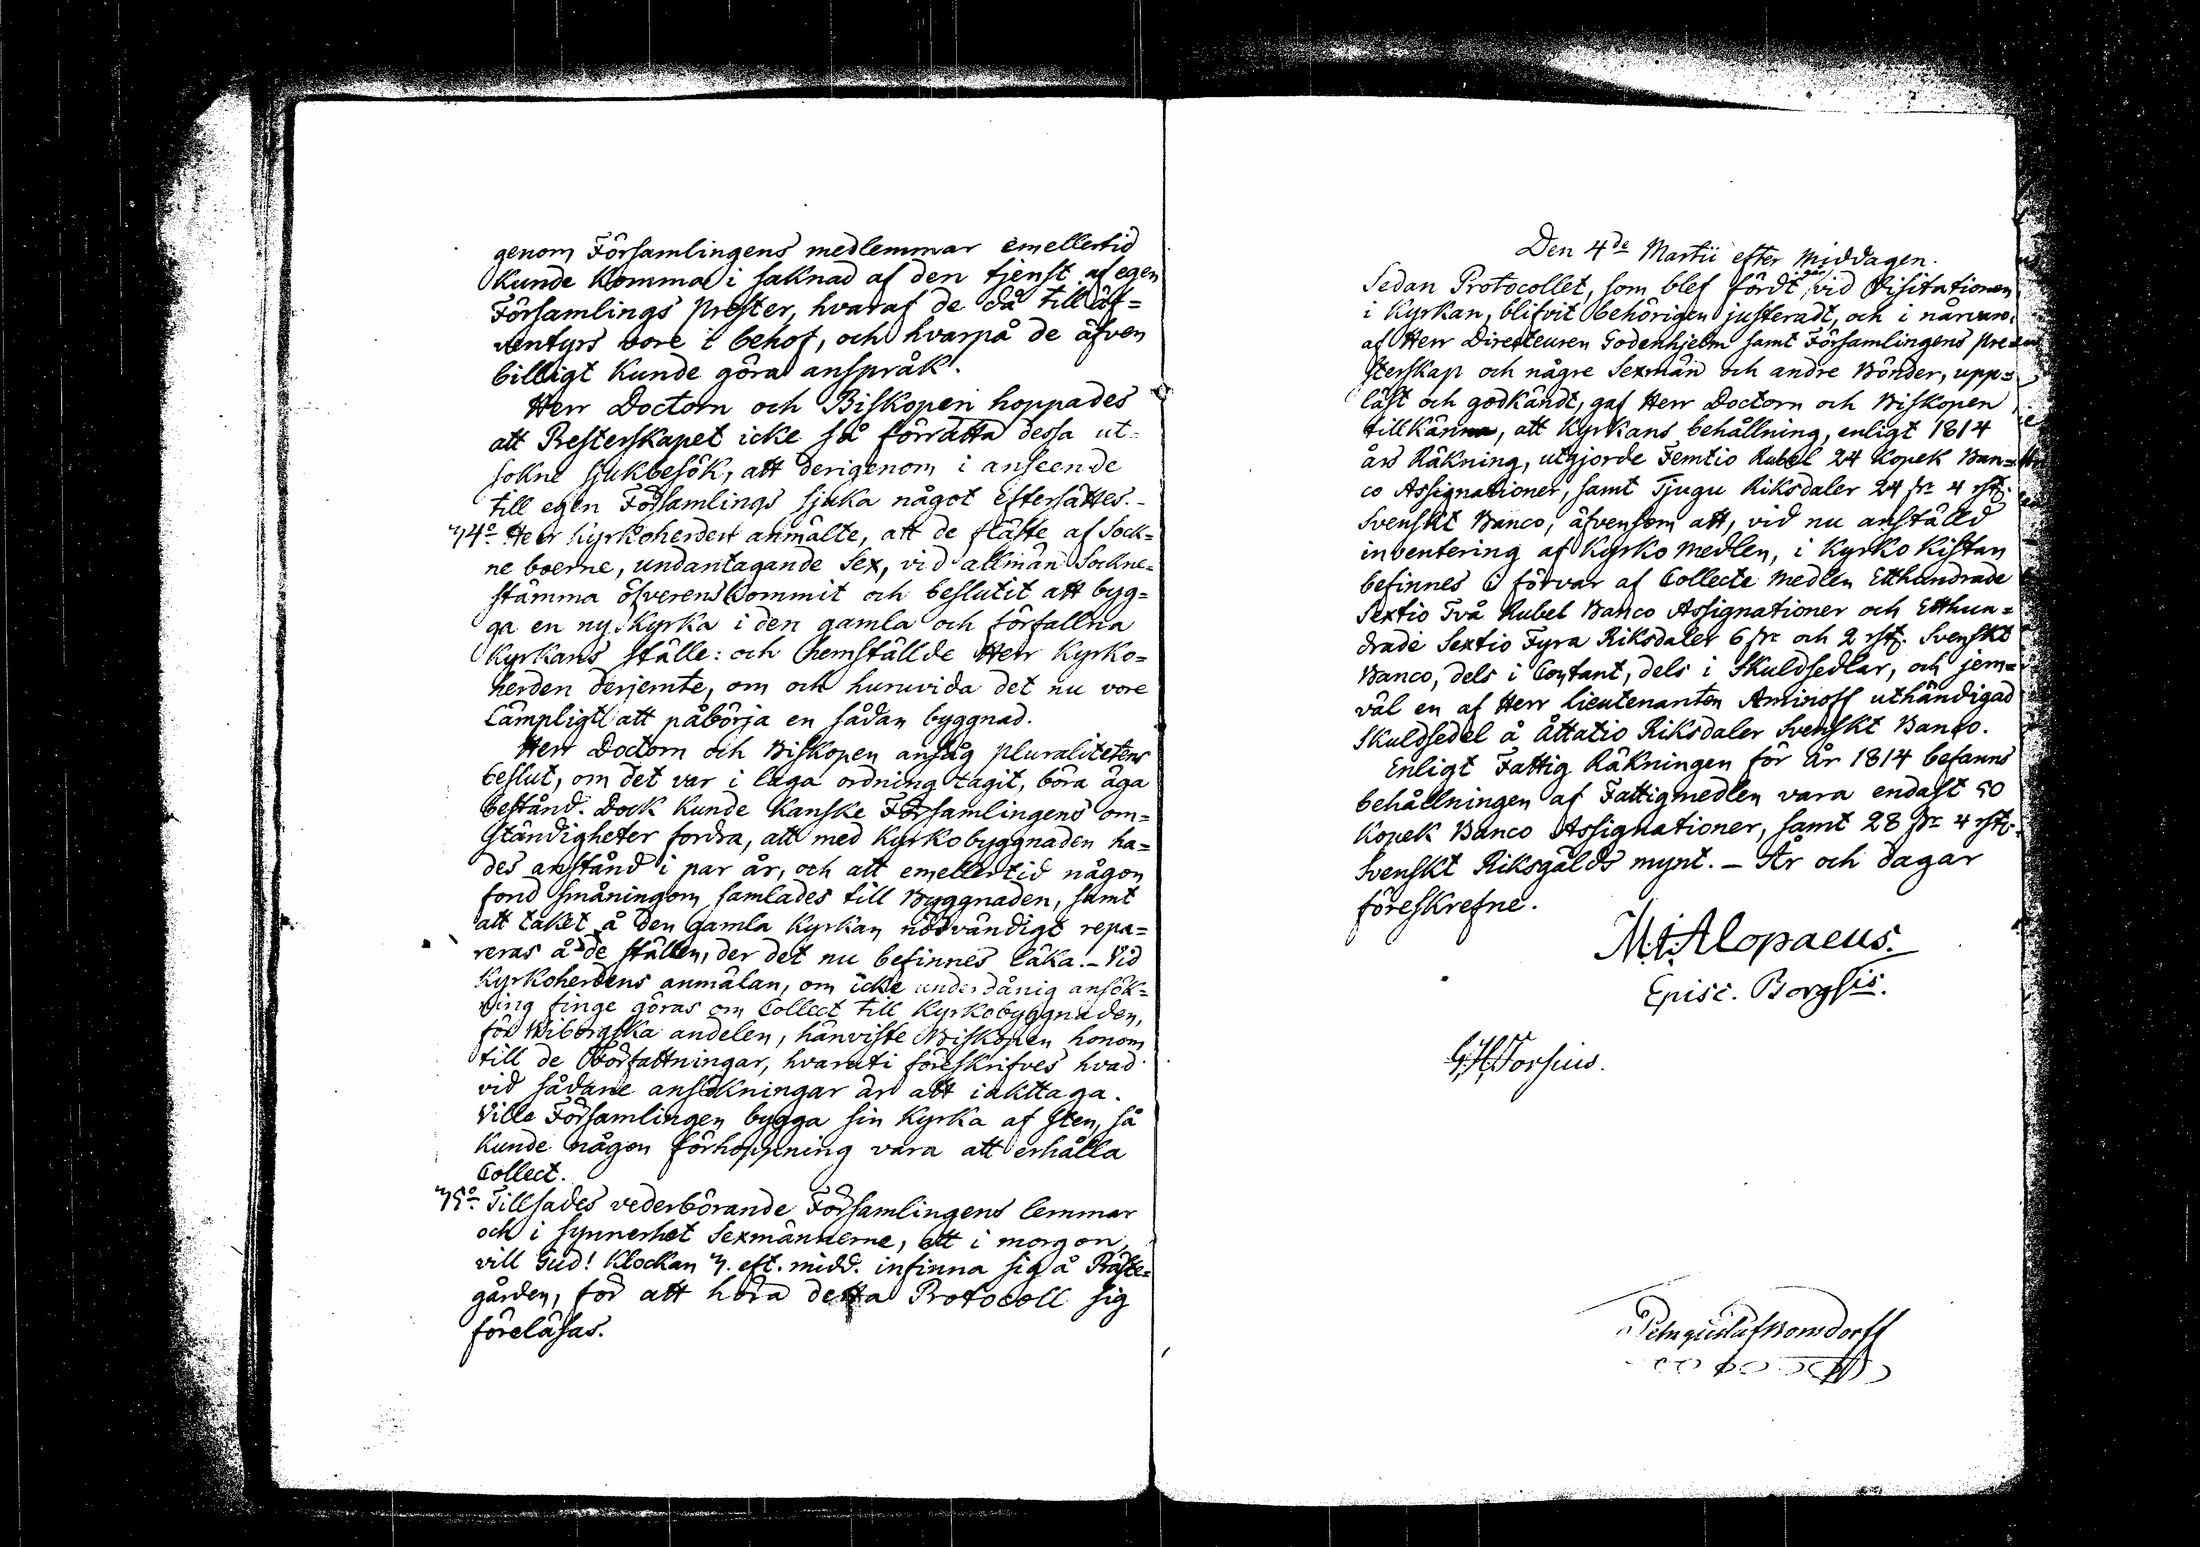 genom Församlingens medlemmar emellertid
kunde komma i saknad af den tjenst af egen
Församlings Prester, hvaraf de då till äf=
ventyrs vore i behof, och hvarpå de äfven
billigt kunde göra anspråk.
Herr Doctorn och Biskopen hoppades
att Presterskapet icke så förrätta dessa ut=
sokne sjukbesök, att derigenom i anseende
till egen Församlings sjuka något eftersättes.–
34º Herr Kyrkoherden anmälte, att de fläste af Sock=
ne boerne, undantagande Sex, vid allmän Sockne=
stämma öfverenskommit och beslutit att byg=
ga en ny Kyrka i den gamla och förfallna
Kyrkans ställe: och hemställde Herr Kyrko=
herden derjemte, om och huruvida det nu vore
Lämpligt att påbörja en sådan byggnad.
Herr Doctorn och Biskopen ansåg pluralitetens
beslut, om det var i laga ordning tagit, böra äga
bestånd. Dock kunde kanske Församlingens om=
ständigheter fordra, att med Kyrkobyggnaden ha=
des anstånd i par år, och att emellertid någon
fond småningom samlades till Byggnaden, samt
att taket å den gamla Kyrkan nödvändigt repa=
reras å de ställen, der det nu befinnes läka.– Vid
Kyrkoherdens anmälan, om icke underdånig ansök=
ning finge göras om Collect till Kyrkobyggnaden,
för Wiborgska andelen, hänviste Biskopen honom
till de Författningar, hvaruti föreskrifves hvad
vid sådane ansökningar är att iakttaga.
Ville Församlingen bygga sin Kyrka af sten, så
kunde någon förhoppning vara att erhålla
Collect.
35º Tillsades vederbörande Församlingens lemmar
och i synnerhet Sexmännerne, att i morgon,
vill Gud! Klockan 3. eft. midd. infinna sig å Präste=
gården, för att höra detta Protocoll sig
föreläsas.
Den 4de Martii efter middagen.
Sedan Protocollet, som blef fördt går vid Visitationen
i Kyrkan, blifvit behörigen justeradt, och i närvaro
af Herr Directeuren Godenhjelm samt Församlingens Pre=
sterskap och någre Sexmän och andre Bönder, upp=
läst och godkändt, gaf Herr Doctorn och Biskopen
tillkänna, att Kyrkans behållning, enligt 1814
års Räkning, utgjorde Femtio Rubel 24 Kopek Ban=
co Assignationer, samt Tjugu Riksdaler 24 sk: 4 rst.
Svenskt Banco, äfvensom att, vid nu anställd
inventering af Kyrko medlen, i Kyrko Kistan
befinnes i förvar af Collecte medlen Etthundrade
Sextio Två Rubel Banco Assignationer och Etthun=
drade Sextio Fyra Riksdaler 6 sk: och 2 rst. Svenskt
Banco, dels i Contant, dels i Skuldsedlar, och jem=
väl en af Herr Lieutenanten Aminoff uthändigad
Skuldsedel å Åttatio Riksdaler Svenskt Banco.
Enligt Fattig Räkningen för År 1814 befanns
behållningen af Fattigmedlen vara endast 50
Kopek Banco Assignationer, samt 28 sk: 4 rst.
Svenskt Riksgälds mynt.– År och dagar
föreskrefne.
M. J. Alopaeus.
Episc. Borgsis.
G. H. Forsius.
Petr Gustaf Bonsdorff